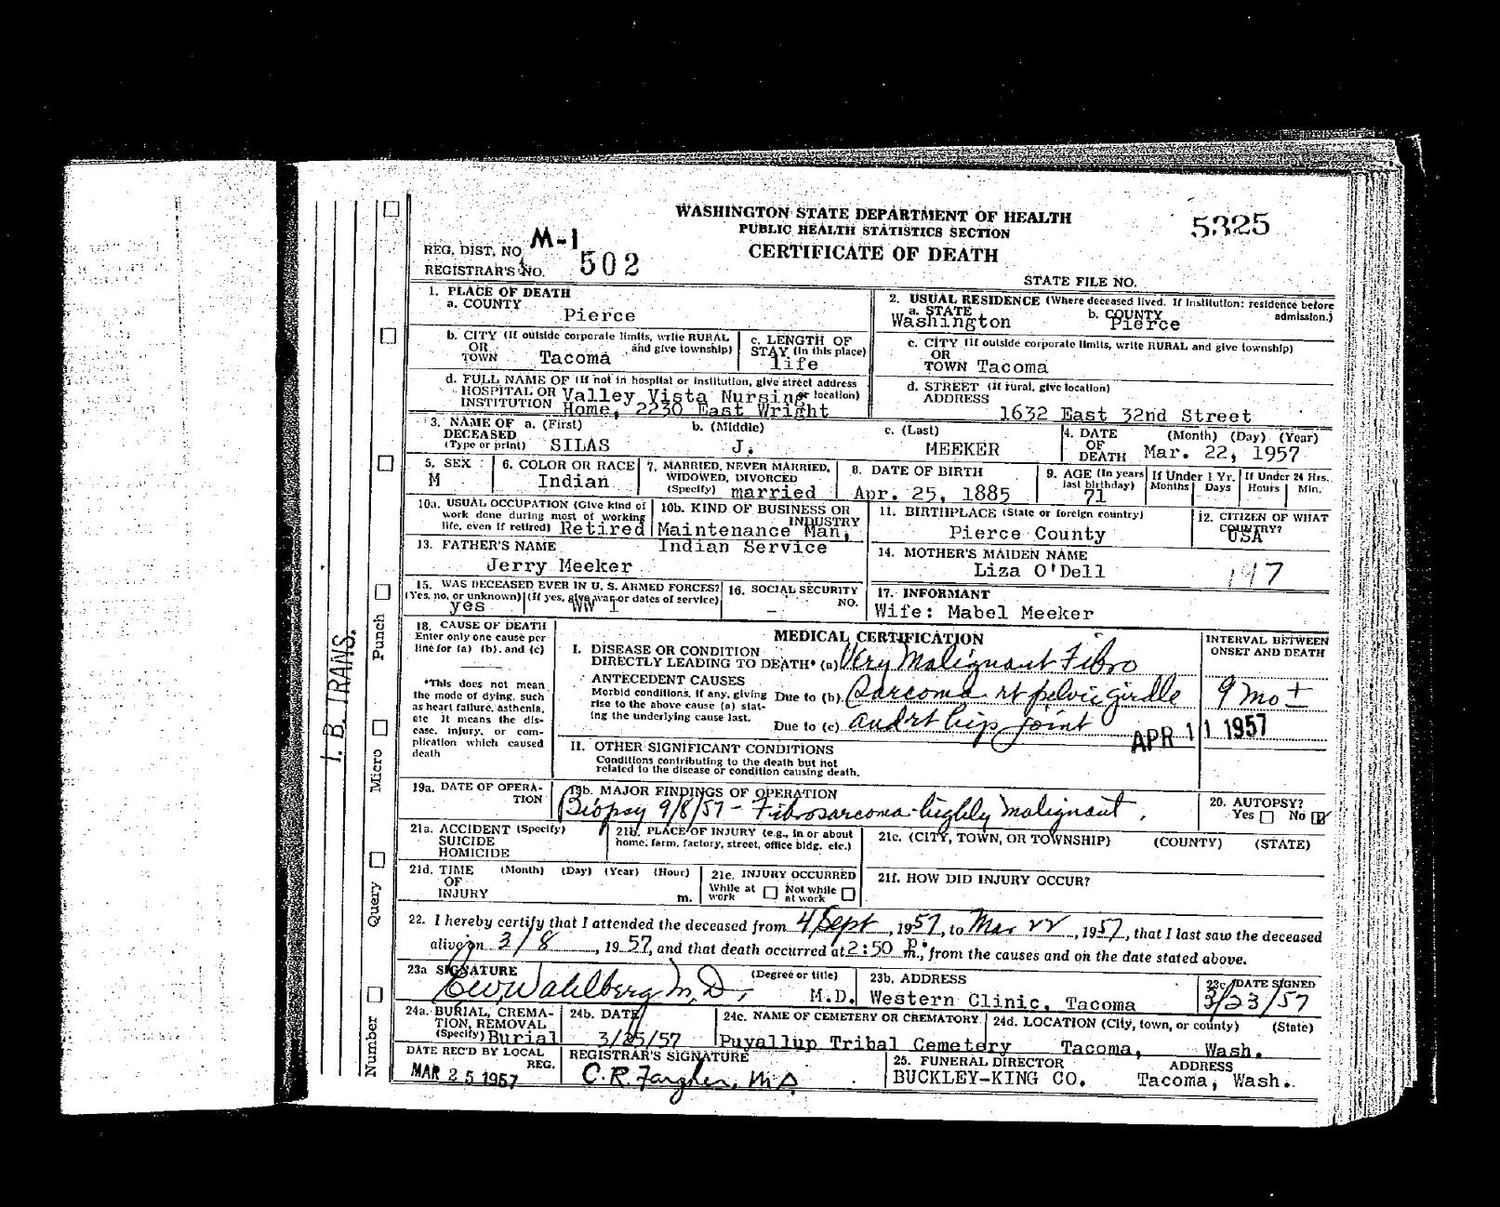 WASHINGTON STATE DEPARTMENT OF HEALTH
PUBLIC HEALTH STATISTICS SECTION
CERTIFICATE OF DEATH
5325
REG. DIST. NO. M-1
REGISTRAR'S NO. 502
STATE FILE NO.
1. PLACE OF DEATH
a. COUNTY
Pierce
2. USUAL RESIDENCE (Where deceased lived. If institution: residence before admission.)
a. STATE b. COUNTY
Washington Pierce
b. CITY (If outside corporate limits, write RURAL and give township)
OR
TOWN Tacoma
c. LENGTH OF
STAY (in this place)
life
c. CITY (If outside corporate limits, write RURAL and give township)
OR
TOWN Tacoma
d. FULL NAME OF (If not in hospital or institution, give street address or location)
HOSPITAL OR
INSTITUTION
Valley Vista Nursing
Home, 2230 East Wright
d. STREET (If rural, give location)
ADDRESS
1632 East 32nd Street
3. NAME OF DECEASED (Type or print)
a. (First) b. (Middle) c. (Last)
SILAS J. MEEKER
4. DATE OF DEATH (Month) (Day) (Year)
Mar. 22, 1957
5. SEX
M
6. COLOR OR RACE
Indian
7. MARRIED, NEVER MARRIED,
WIDOWED, DIVORCED
(Specify) married
8. DATE OF BIRTH
Apr. 25, 1885
9. AGE (In years
last birthday)
71
If Under 1 Yr.
Months Days
If Under 24 Hrs.
Hours Min.
10a. USUAL OCCUPATION (Give kind of
work done during most of working
life, even if retired) Retired
10b. KIND OF BUSINESS OR
INDUSTRY
Maintenance Man,
Indian Service
11. BIRTHPLACE (State or foreign country)
Pierce County
12. CITIZEN OF WHAT
COUNTRY?
USA
13. FATHER'S NAME
Jerry Meeker
14. MOTHER'S MAIDEN NAME
Liza O'Dell
197
15. WAS DECEASED EVER IN U. S. ARMED FORCES?
(Yes, no, or unknown) (If yes, give war or dates of service)
yes WW 1
16. SOCIAL SECURITY
NO.
-
17. INFORMANT
Wife: Mabel Meeker
18. CAUSE OF DEATH
Enter only one cause per
line for (a) (b), and (c)
*This does not mean
the mode of dying, such
as heart failure, asthenia,
etc It means the dis-
ease, injury, or com-
plication which caused
death
MEDICAL CERTIFICATION
INTERVAL BETWEEN
ONSET AND DEATH
I. DISEASE OR CONDITION
DIRECTLY LEADING TO DEATH* (a) Very Malignant Fibro
ANTECEDENT CAUSES
Morbid conditions, if any, giving
rise to the above cause (a) stat-
ing the underlying cause last.
Due to (b) Sarcoma rt pelvic girdle
9 mo ±
Due to (c) and rt hip joint
APR 11 1957
II. OTHER SIGNIFICANT CONDITIONS
Conditions contributing to the death but not
related to the disease or condition causing death.
19a. DATE OF OPERA-
TION
19b. MAJOR FINDINGS OF OPERATION
Biopsy 9/8/57 - Fibrosarcoma-highly malignant.
20. AUTOPSY?
Yes No
21a. ACCIDENT (Specify)
SUICIDE
HOMICIDE
21b. PLACE OF INJURY (e.g., in or about
home, farm, factory, street, office bldg. etc.)
21c. (CITY, TOWN, OR TOWNSHIP) (COUNTY) (STATE)
21d. TIME (Month) (Day) (Year) (Hour)
OF
INJURY m.
21e. INJURY OCCURRED
While at work Not while at work
21f. HOW DID INJURY OCCUR?
22. I hereby certify that I attended the deceased from 4 Sept, 1957, to Mar 22, 1957, that I last saw the deceased
alive on 3/8, 1957, and that death occurred at 2:50 P. m., from the causes and on the date stated above.
23a SIGNATURE (Degree or title)
Wahlberg M.D. M.D.
23b. ADDRESS
Western Clinic, Tacoma
23c DATE SIGNED
3/23/57
24a. BURIAL, CREMA-
TION, REMOVAL
(Specify) Burial
24b. DATE
3/25/57
24c. NAME OF CEMETERY OR CREMATORY
Puyallup Tribal Cemetery
24d. LOCATION (City, town, or county) (State)
Tacoma, Wash.
DATE REC'D BY LOCAL
REG.
MAR 25 1957
REGISTRAR'S SIGNATURE
C. R. Fargher, M.D.
25. FUNERAL DIRECTOR ADDRESS
BUCKLEY-KING CO. Tacoma, Wash.
I. B. TRANS.
Number Query Micro Punch